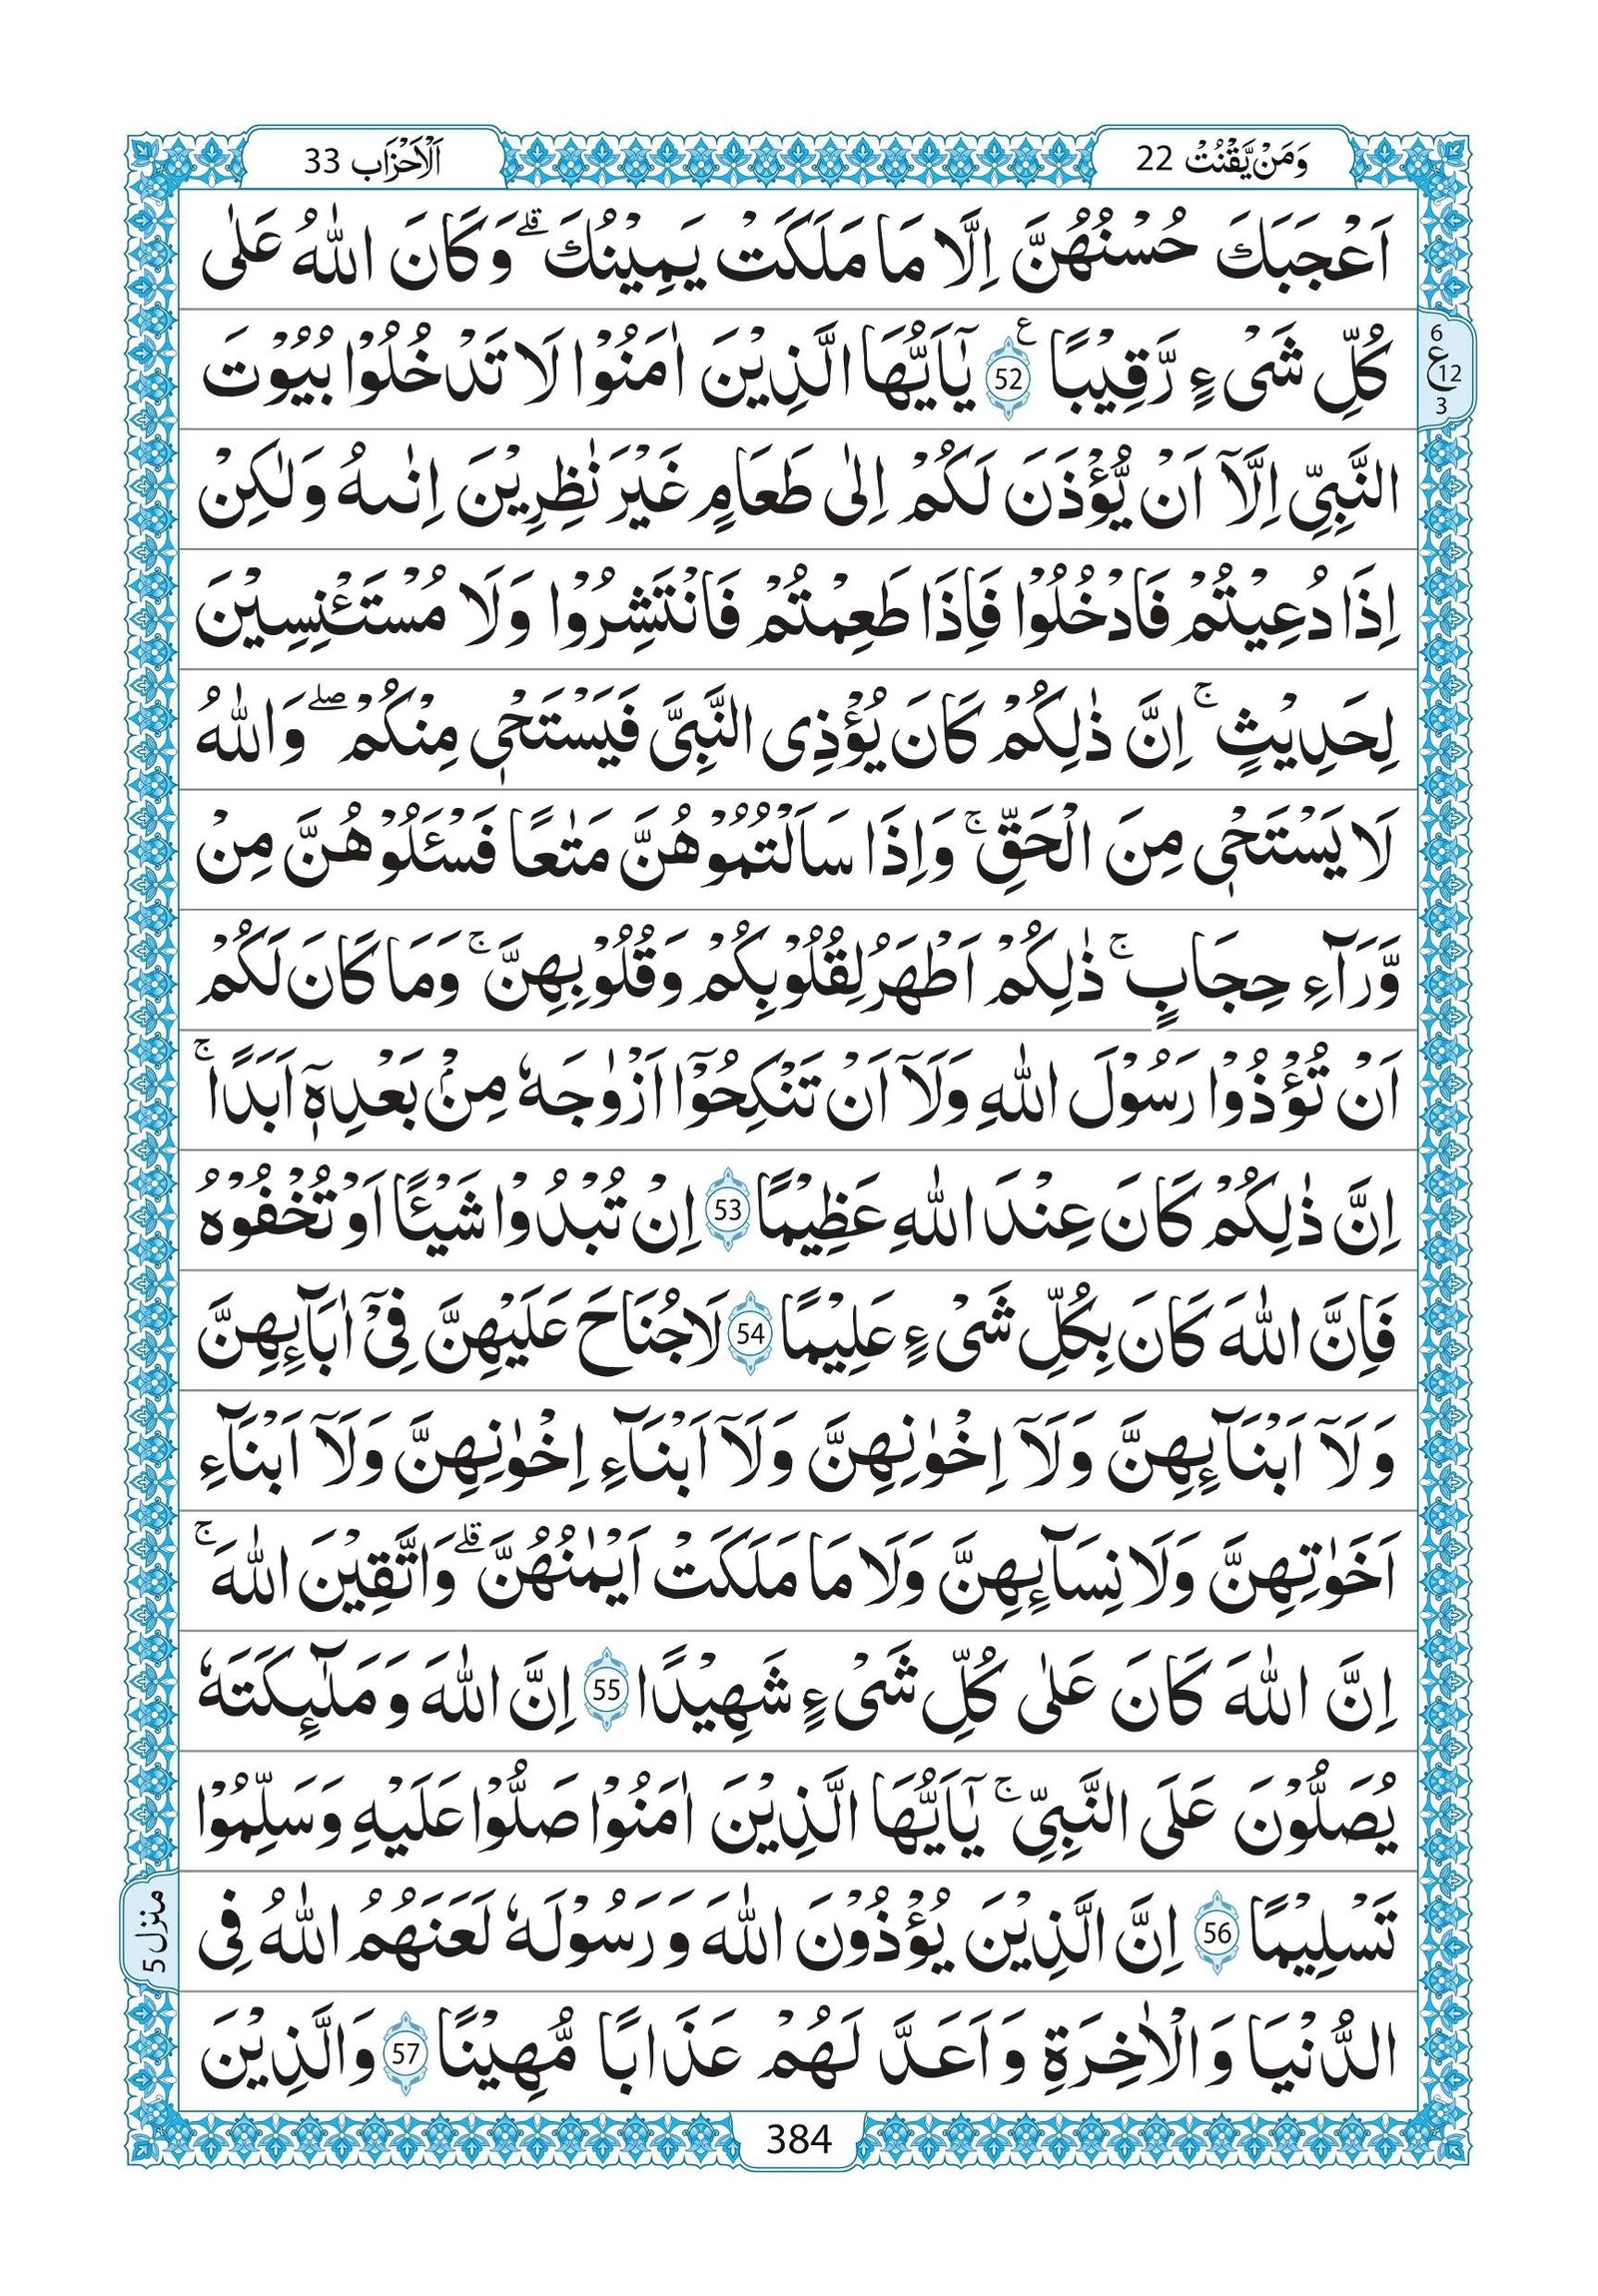 وَمَنْ يَّقْنُتْ 22
اَلْاَحْزَاب 33
اَعْجَبَكَ حُسْنُهُنَّ اِلَّا مَا مَلَكَتْ يَمِيْنُكَ ۗ وَكَانَ اللّٰهُ عَلٰى
كُلِّ شَىْءٍ رَّقِيْبًا ࣖ 52 يٰٓاَيُّهَا الَّذِيْنَ اٰمَنُوْا لَا تَدْخُلُوْا بُيُوْتَ
6
ع 12
3
النَّبِىِّ اِلَّآ اَنْ يُّؤْذَنَ لَكُمْ اِلٰى طَعَامٍ غَيْرَ نٰظِرِيْنَ اِنٰىهُ وَلٰكِنْ
اِذَا دُعِيْتُمْ فَادْخُلُوْا فَاِذَا طَعِمْتُمْ فَانْتَشِرُوْا وَلَا مُسْتَـْٔنِسِيْنَ
لِحَدِيْثٍ ۚ اِنَّ ذٰلِكُمْ كَانَ يُؤْذِى النَّبِىَّ فَيَسْتَحْىٖ مِنْكُمْ ۖ وَاللّٰهُ
لَا يَسْتَحْىٖ مِنَ الْحَقِّ ۚ وَاِذَا سَاَلْتُمُوْهُنَّ مَتٰعًا فَسْـَٔلُوْهُنَّ مِنْ
وَّرَآءِ حِجَابٍ ۚ ذٰلِكُمْ اَطْهَرُ لِقُلُوْبِكُمْ وَقُلُوْبِهِنَّ ۚ وَمَا كَانَ لَكُمْ
اَنْ تُؤْذُوْا رَسُوْلَ اللّٰهِ وَلَآ اَنْ تَنْكِحُوْٓا اَزْوٰجَهٗ مِنْۢ بَعْدِهٖٓ اَبَدًا ۚ
اِنَّ ذٰلِكُمْ كَانَ عِنْدَ اللّٰهِ عَظِيْمًا 53 اِنْ تُبْدُوْا شَيْـًٔا اَوْ تُخْفُوْهُ
فَاِنَّ اللّٰهَ كَانَ بِكُلِّ شَىْءٍ عَلِيْمًا 54 لَا جُنَاحَ عَلَيْهِنَّ فِىْٓ اٰبَآئِهِنَّ
وَلَآ اَبْنَآئِهِنَّ وَلَآ اِخْوٰنِهِنَّ وَلَآ اَبْنَآءِ اِخْوٰنِهِنَّ وَلَآ اَبْنَآءِ
اَخَوٰتِهِنَّ وَلَا نِسَآئِهِنَّ وَلَا مَا مَلَكَتْ اَيْمٰنُهُنَّ ۗ وَاتَّقِيْنَ اللّٰهَ ۚ
اِنَّ اللّٰهَ كَانَ عَلٰى كُلِّ شَىْءٍ شَهِيْدًا 55 اِنَّ اللّٰهَ وَمَلٰٓئِكَتَهٗ
يُصَلُّوْنَ عَلَى النَّبِىِّ ۚ يٰٓاَيُّهَا الَّذِيْنَ اٰمَنُوْا صَلُّوْا عَلَيْهِ وَسَلِّمُوْا
تَسْلِيْمًا 56 اِنَّ الَّذِيْنَ يُؤْذُوْنَ اللّٰهَ وَرَسُوْلَهٗ لَعَنَهُمُ اللّٰهُ فِى
منزل 5
الدُّنْيَا وَالْاٰخِرَةِ وَاَعَدَّ لَهُمْ عَذَابًا مُّهِيْنًا 57 وَالَّذِيْنَ
384